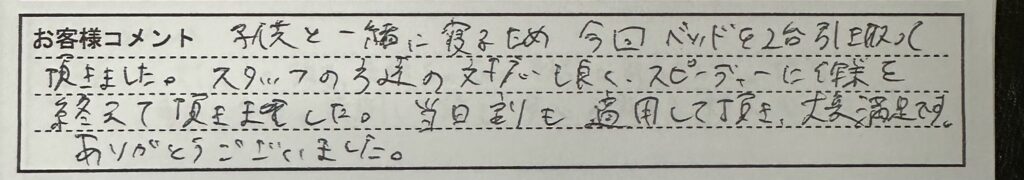 お客様コメント 子供と一緒に寝るため 今回 ベッドを2台引き取って
頂きました。 スタッフの方達の対応も良く、スピーディーに作業を
終えて頂きました。 当日割も適用して頂き、大変満足です。
ありがとうございました。